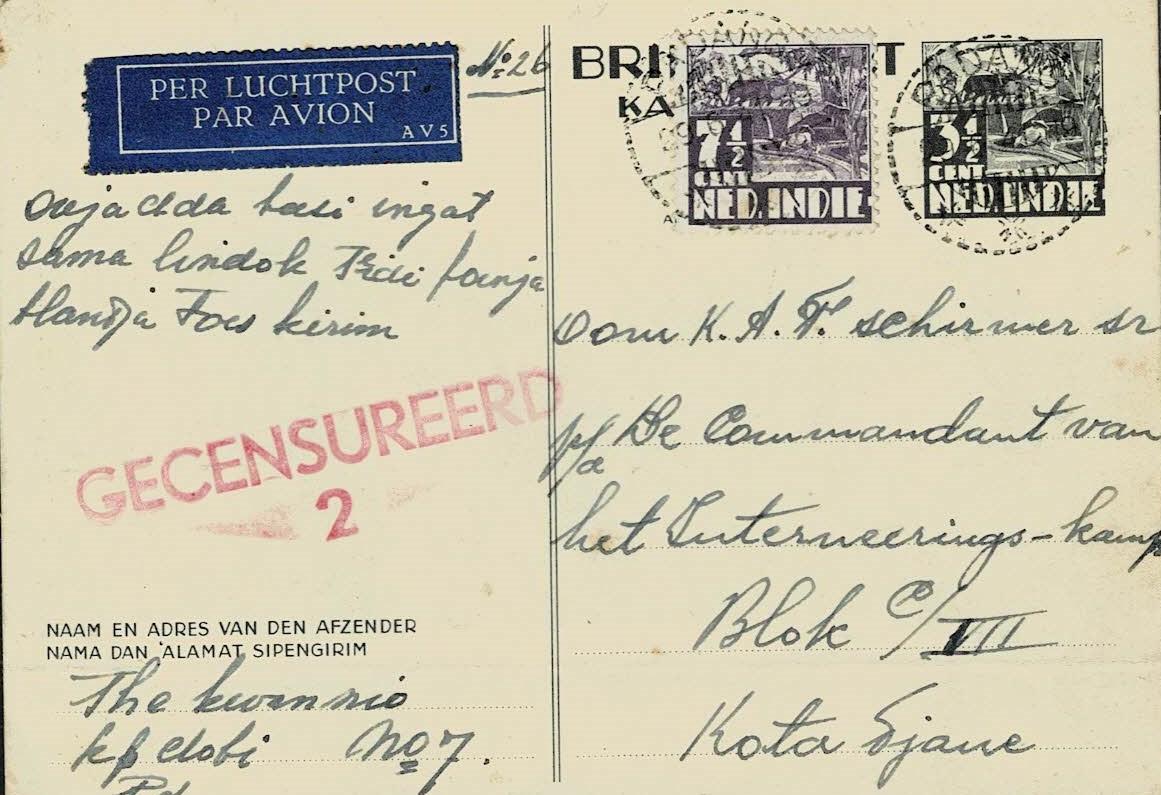 PER LUCHTPOST
PAR AVION
AV5
No 26
BRI T
KA
7 1/2
CENT
NED. INDIE
3 1/2
CENT
NED. INDIE
ada hasi ingat
sama lindok
kirim
GECENSUREERD
2
Dom K. A. F. schirmer sr
p/a De Commandant van
het Interneerings-kamp
Blok C/VIII
Kota Tjane
NAAM EN ADRES VAN DEN AFZENDER
NAMA DAN 'ALAMAT SIPENGIRIM
The kwan nio
kp dobi No 7.